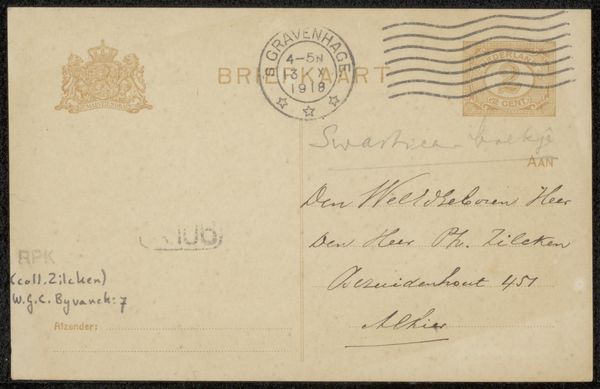 BRIEFKAART
'S GRAVENHAGE
4-5N
13 X
1918
NEDERLAND
2
CENT
Swastica-boekje
AAN
Den WelEdelgeboren Heer
Den Heer Ph. Zilcken
Bezuidenhout 451
Alhier
RPK
(coll. Zilcken)
W.G.C. Byvanck: 7
Afzender: